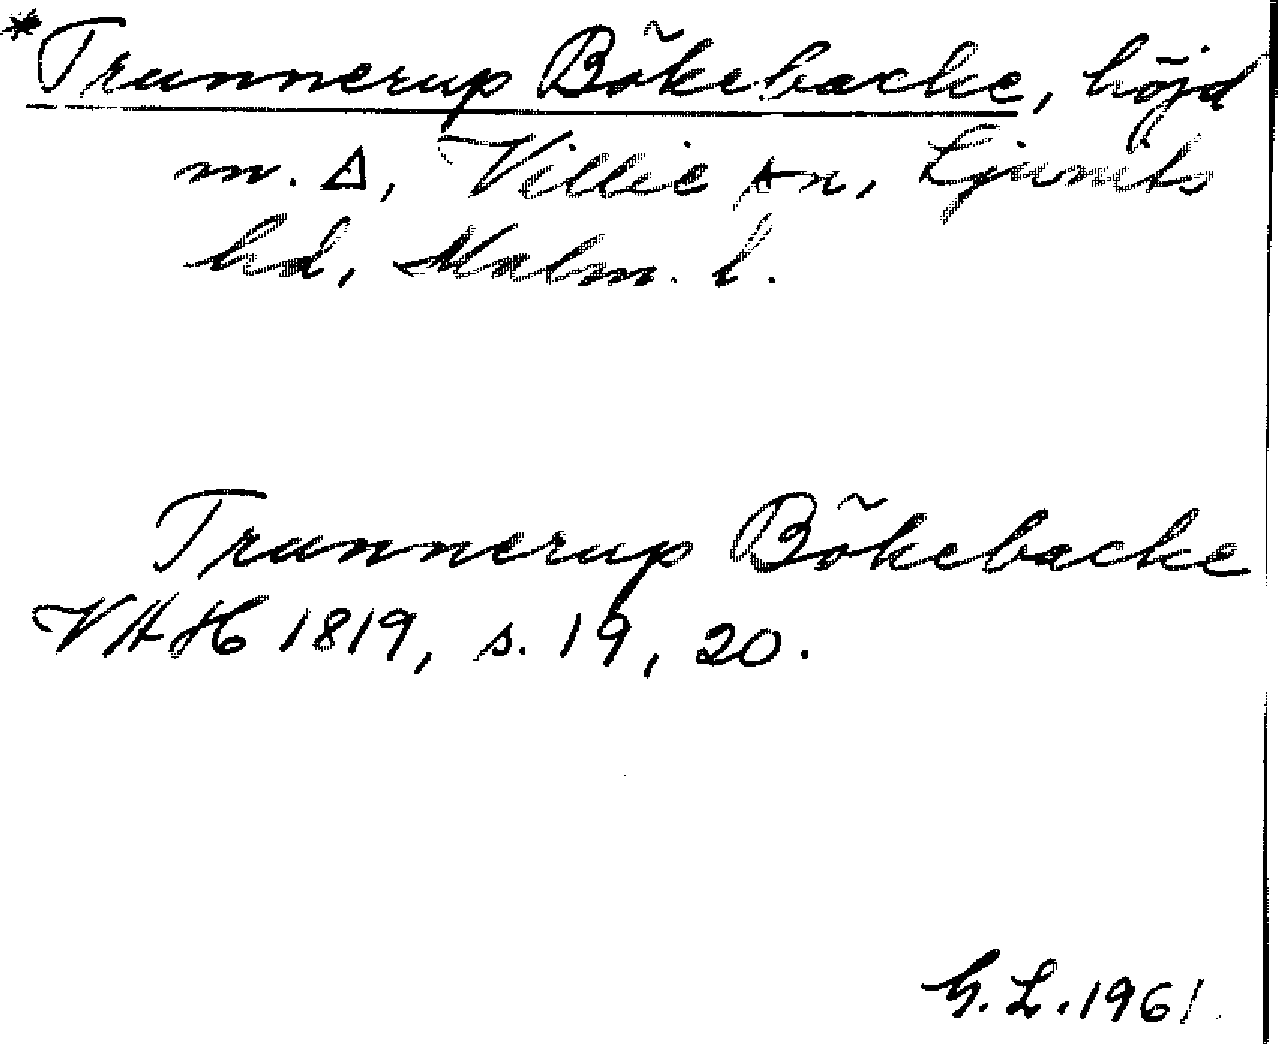 *Trunnerup Bökebacke, höjd
m. △, Villie sn, Ljunits
hd, Malm. l.
Trunnerup Bökebacke
VAH 1819, s. 19, 20.
G. L. 1961